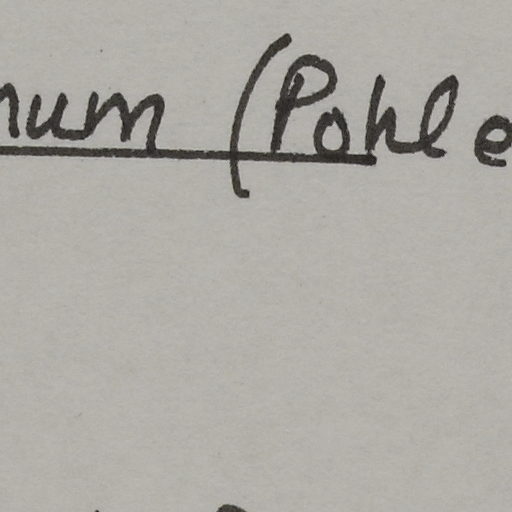 num (Pohle